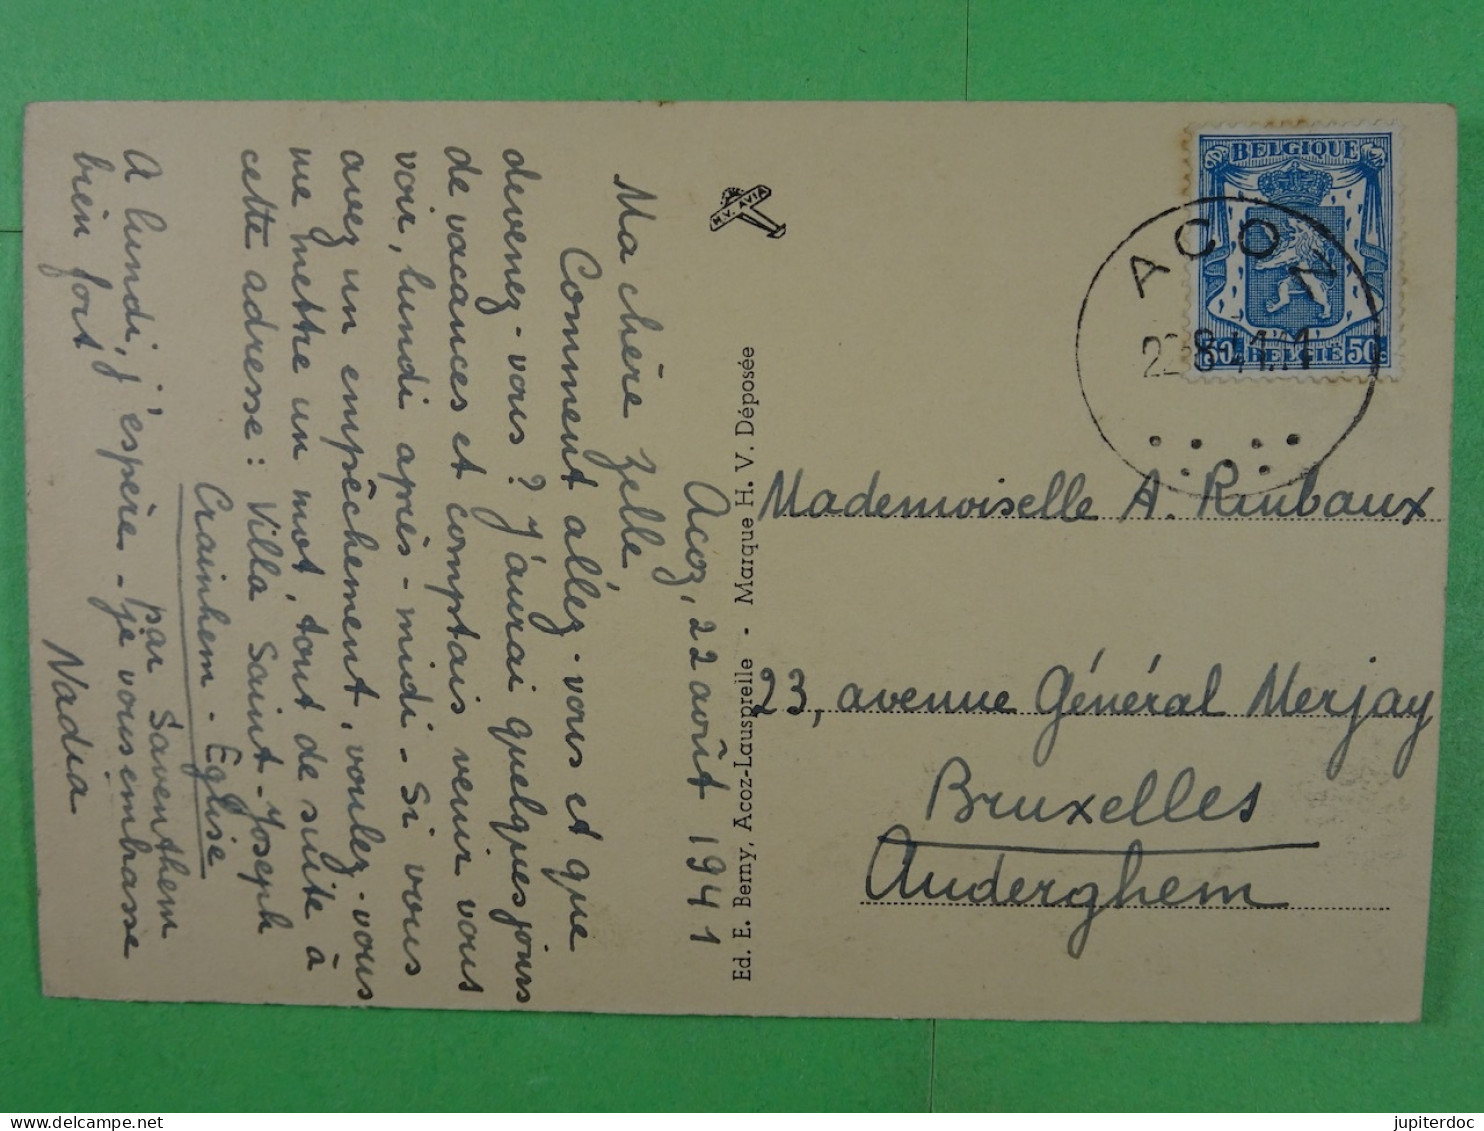 Acoz, 22 août 1941
Ma chère Zelle
Comment allez-vous et que
devenez-vous? J'aurai quelques jours
de vacances et comptais venir vous
voir, lundi après-midi - Si vous
avez un empêchement, voulez-vous
me mettre un mot, tout de suite à
cette adresse: Villa Saint-Joseph
Crainhem - Eglise
par Saventhem
A lundi, j'espère - je vous embrasse
bien fort
Nadia
H.V. AVIA
Ed. E. Berny, Acoz-Lausprelle - Marque H. V. Déposée
BELGIQUE
BELGIË 50c
ACOZ
Mademoiselle A. Rimbaux
23, avenue Général Merjay
Bruxelles
Auderghem
jupiterdoc